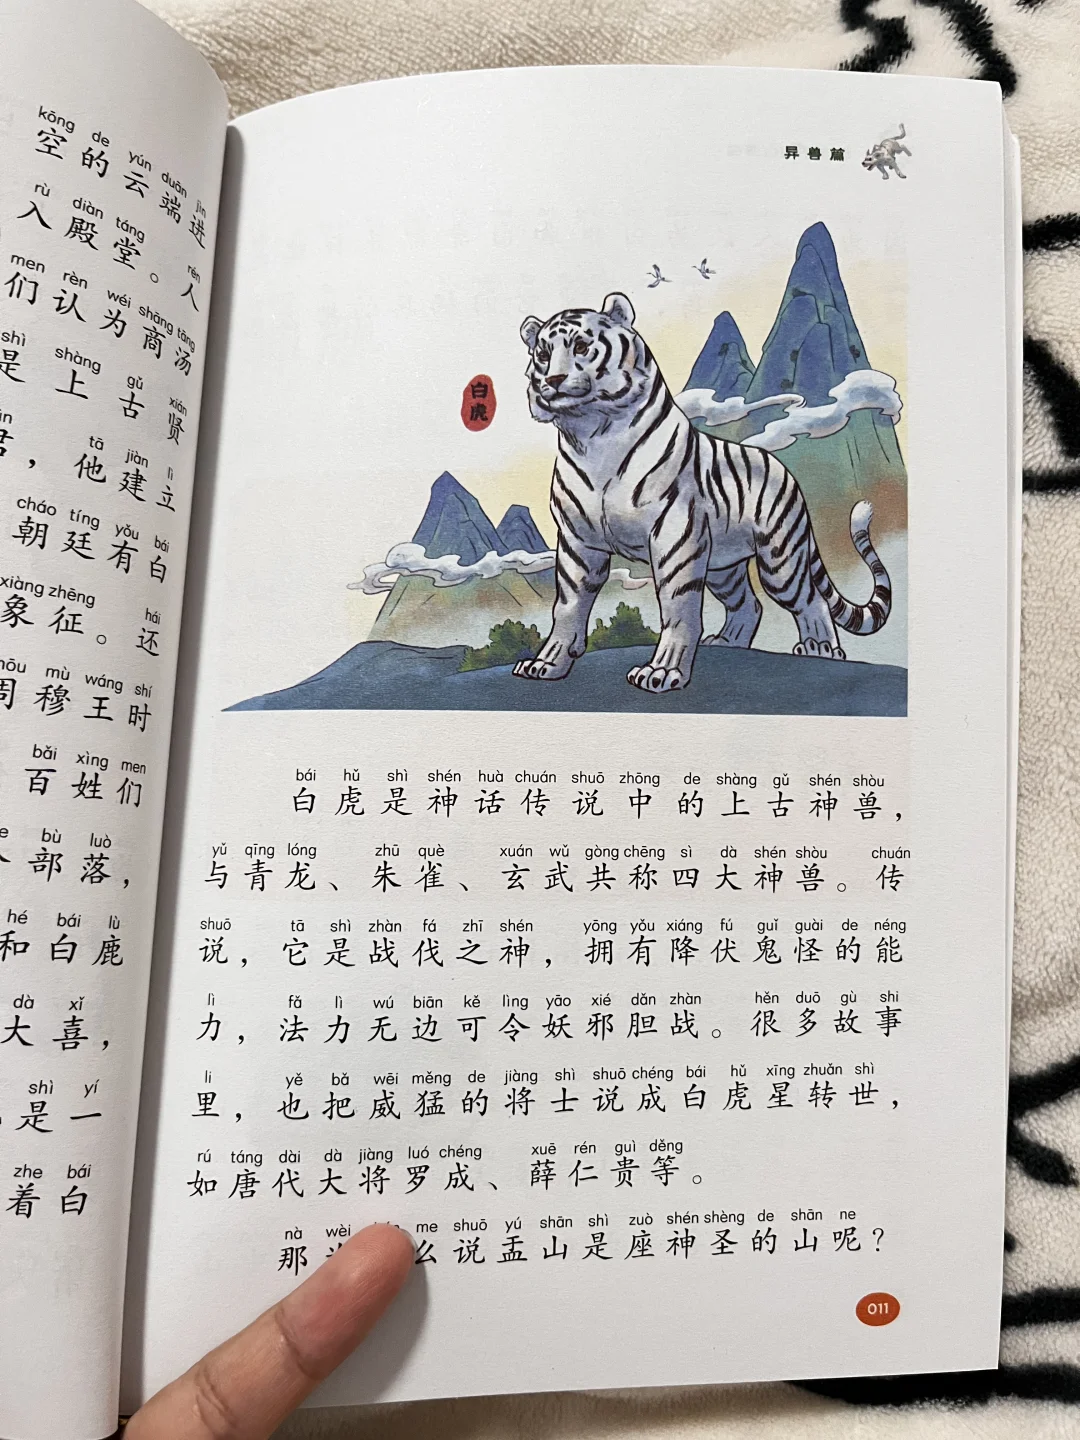 kōng de yún duān jìn
空的云端进
rù diàn táng rén
入殿堂。人
men rèn wéi shāng tāng
们认为商汤
shì shàng gǔ xián
是上古贤
tā jiàn lì
，他建立
cháo tíng yǒu bái
朝廷有白
xiàng zhēng hái
象征。还
mù wáng shí
穆王时
bǎi xìng men
百姓们
bù luò
部落，
hé bái lù
和白鹿
dà xǐ
大喜，
shì yí
是一
zhe bái
着白
异兽篇
白虎
bái hǔ shì shén huà chuán shuō zhōng de shàng gǔ shén shòu
白虎是神话传说中的上古神兽，
yǔ qīng lóng zhū què xuán wǔ gòng chēng sì dà shén shòu chuán
与青龙、朱雀、玄武共称四大神兽。传
shuō tā shì zhàn fá zhī shén yōng yǒu xiáng fú guǐ guài de néng
说，它是战伐之神，拥有降伏鬼怪的能
lì fǎ lì wú biān kě lìng yāo xié dǎn zhàn hěn duō gù shi
力，法力无边可令妖邪胆战。很多故事
li yě bǎ wēi měng de jiàng shì shuō chéng bái hǔ xīng zhuǎn shì
里，也把威猛的将士说成白虎星转世，
rú táng dài dà jiàng luó chéng xuē rén guì děng
如唐代大将罗成、薛仁贵等。
nà wèi me shuō yú shān shì zuò shén shèng de shān ne
那么说盂山是座神圣的山呢？
011